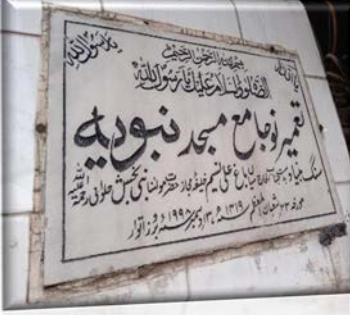 یا رسول اللہ
بسم اللہ الرحمن الرحیم
الصلوٰۃ والسلام علیک یا رسول اللہ
تعمیر نو جامع مسجد نبویہ
سنگ بنیاد باغ علی نسیم خلیفہ مجاز حضرت مولانا نبی بخش حلوائی رحمۃ اللہ علیہ
مورخہ ۲۳ شعبان المعظم ۱۴۱۹ھ ۱۳ دسمبر ۱۹۹۸ء بروز اتوار